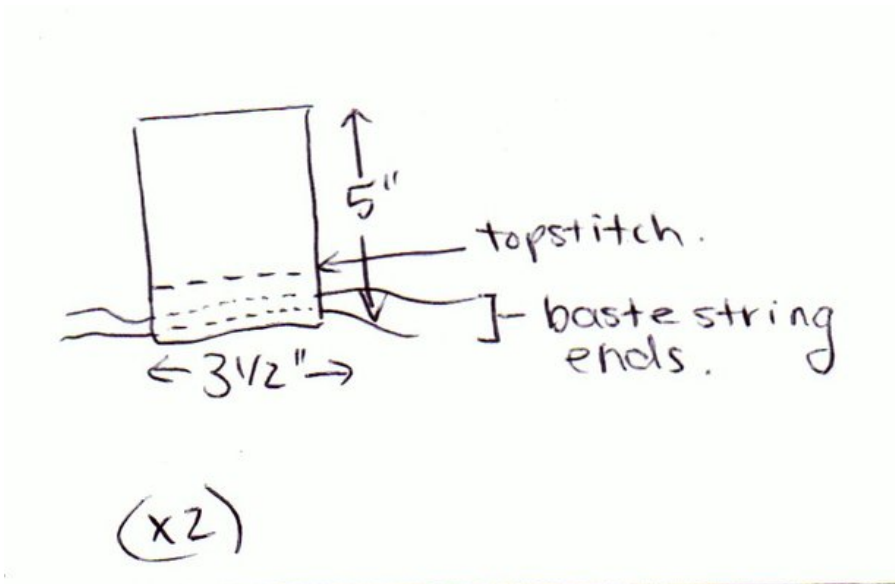 5"
topstitch.
baste string
ends.
← 3 1/2" →
(x2)